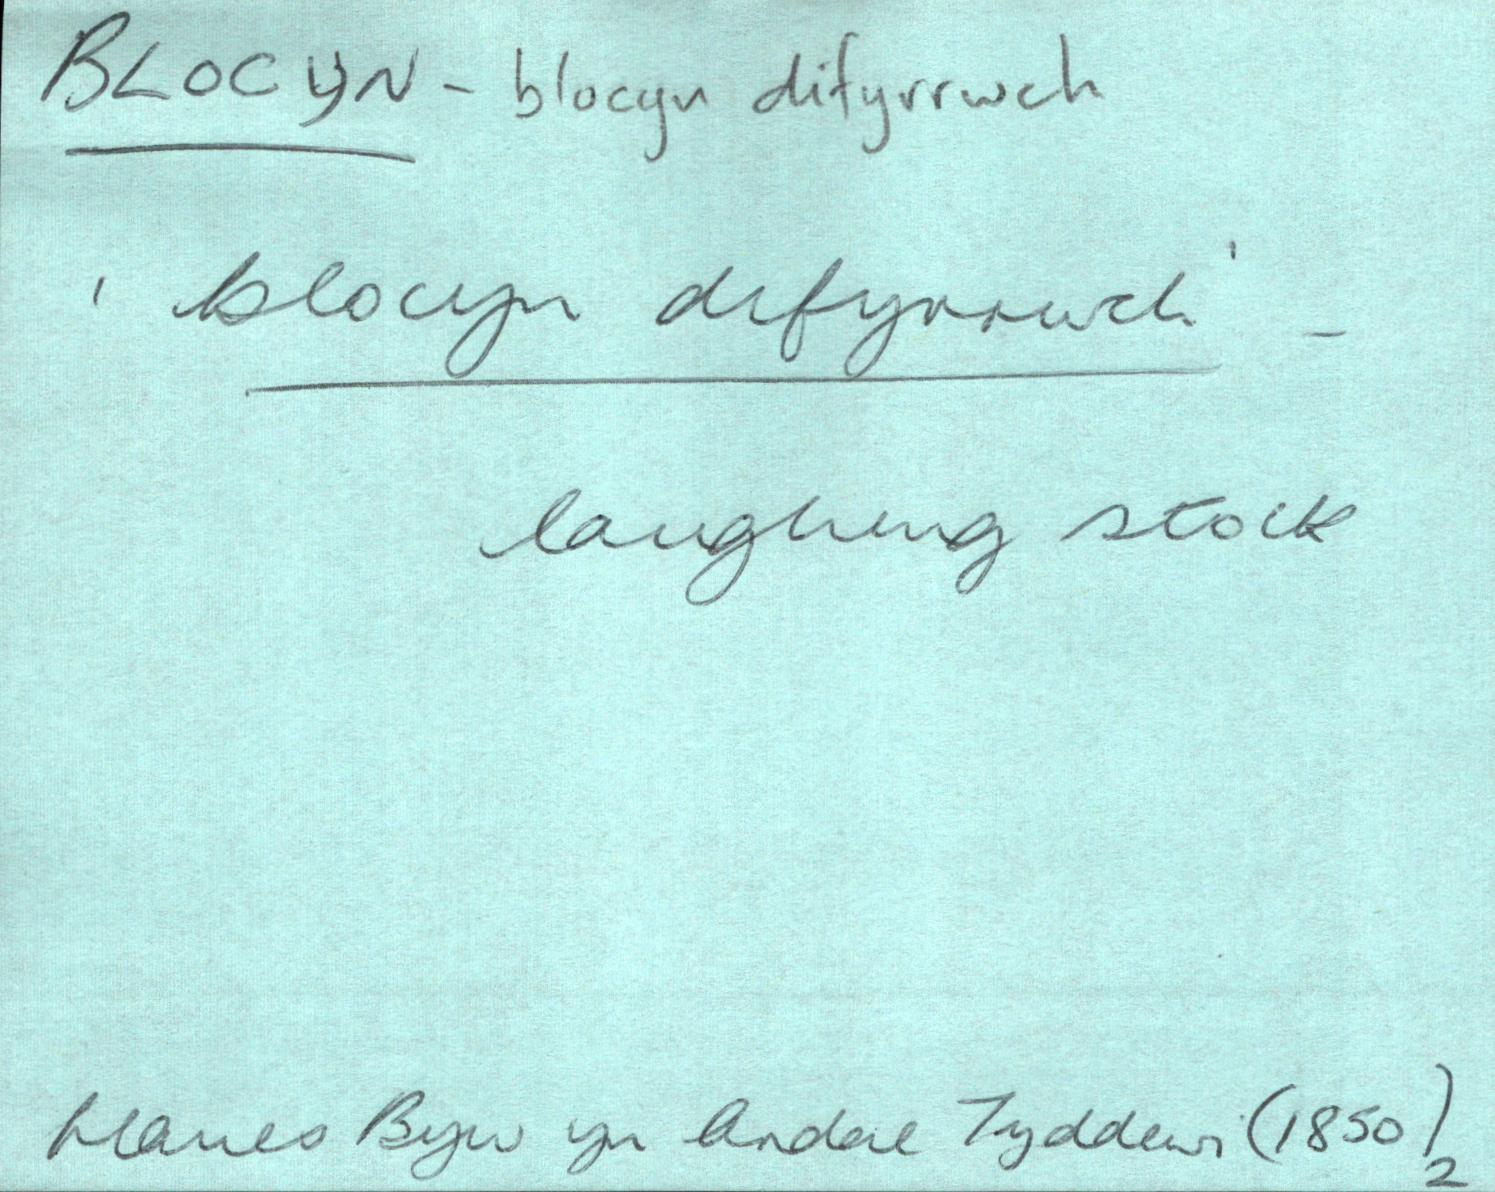 BLOCYN - blocyn difyrrwch
' blocyn difyrrwch' -
laughing stock
Hanes Byw yn Ardal Tyddewi (1850) 2